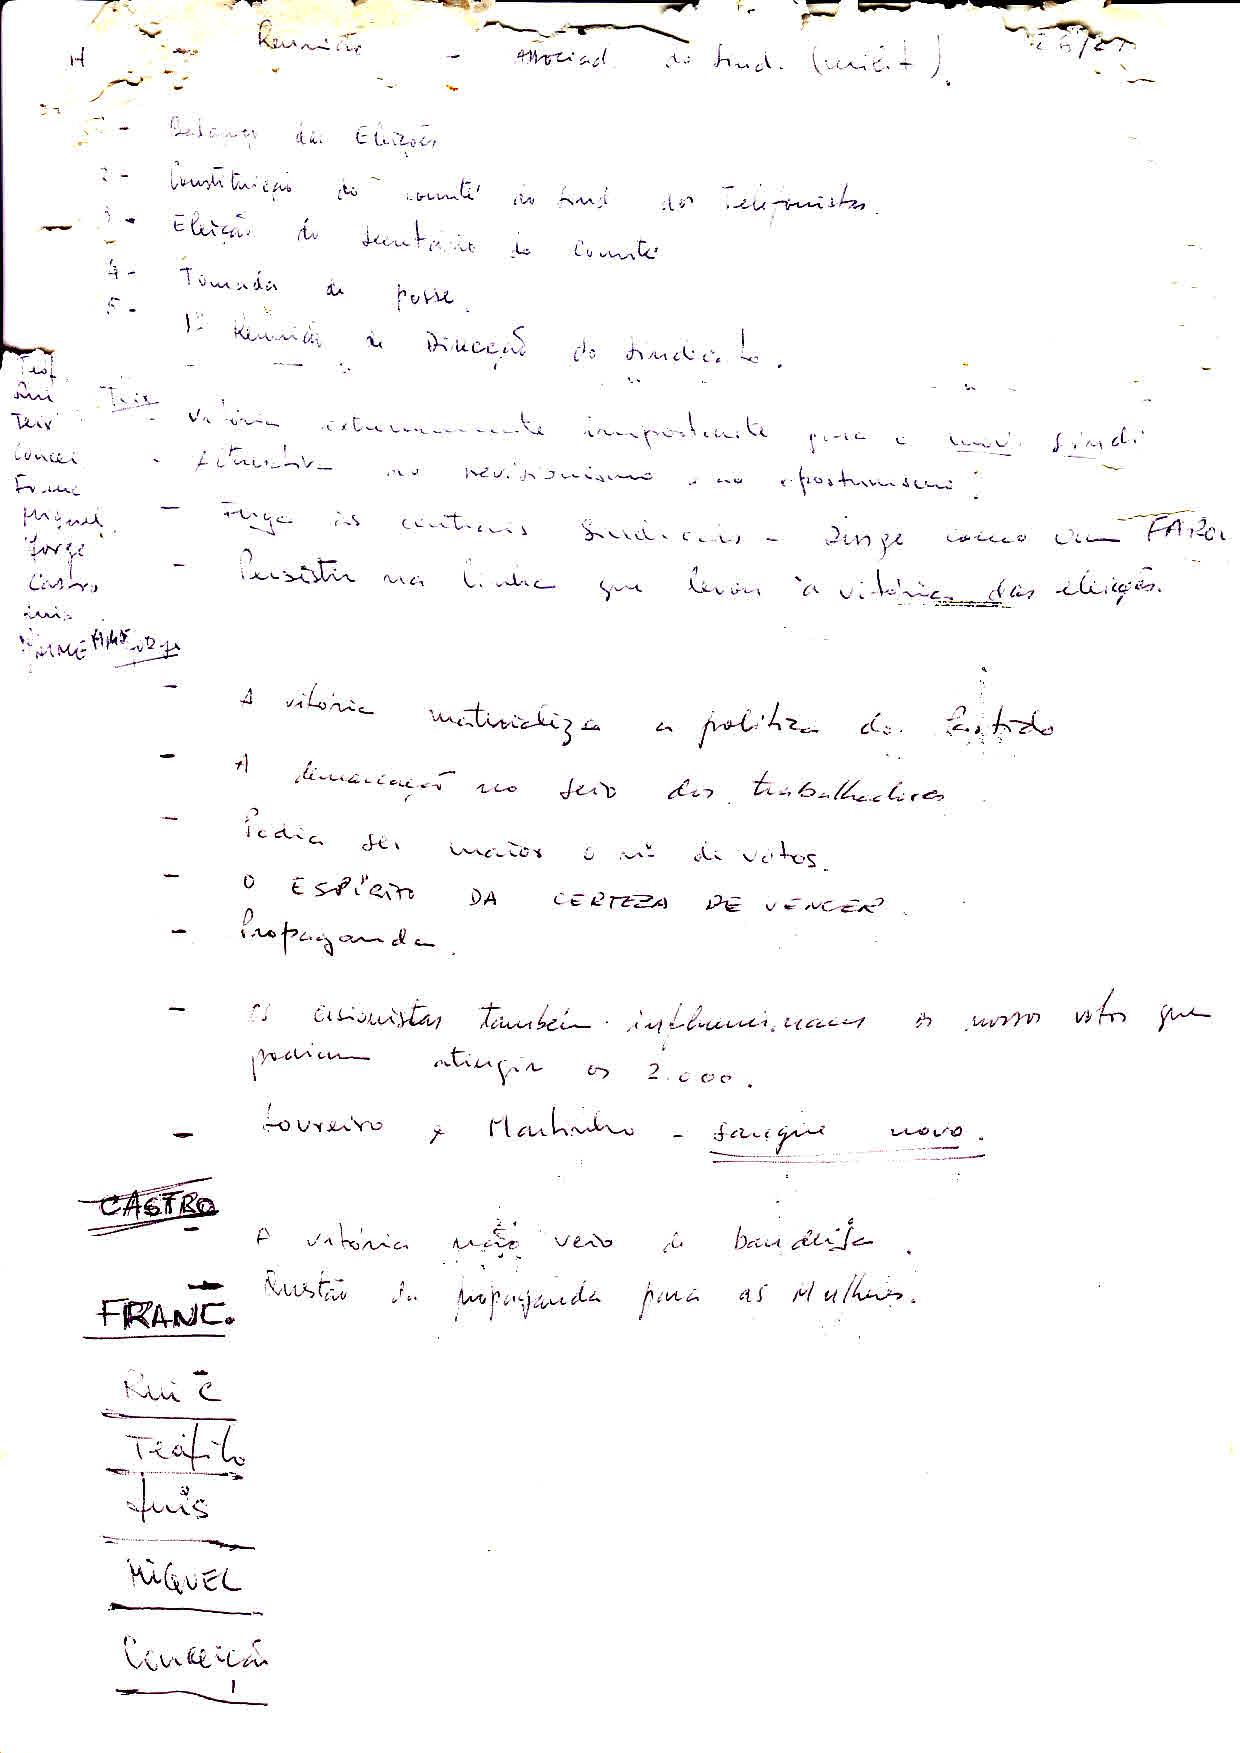 Reunião - do Sind.
1 - Balanço das Eleições
2 - Constituição do comité do Sind dos Telefonistas.
3 - Eleição do Secretário do Comité
4 - Tomada de posse.
5 - 1ª Reunião de Direcção do Sindicato.
Teof.
Rui
Teix
Concei
Franc
Miguel
Jorge
Castro
Luis
Teix - Vitória extremamente importante para o
- ao revisionismo e ao oportunismo.
- às centrais Sindicais - Surge como um FAROL
- Persistir na linha que levou à vitória das eleições.
- A vitória materializa a politica do Partido
- A demarcação no seio dos trabalhadores
- Podia ser maior o nº de votos.
- O ESPÍRITO DA CERTEZA DE VENCER.
- Propaganda.
- Os cisionistas também influenciaram os nossos votos que
podiam atingir os 2.000.
- Loureiro e Martinho - sangue novo.
CASTRO
- A vitória não veio de bandeija.
- Questão da propaganda para as Mulheres.
FRANC.
Rui C
Teófilo
Luis
MIGUEL
Conceição